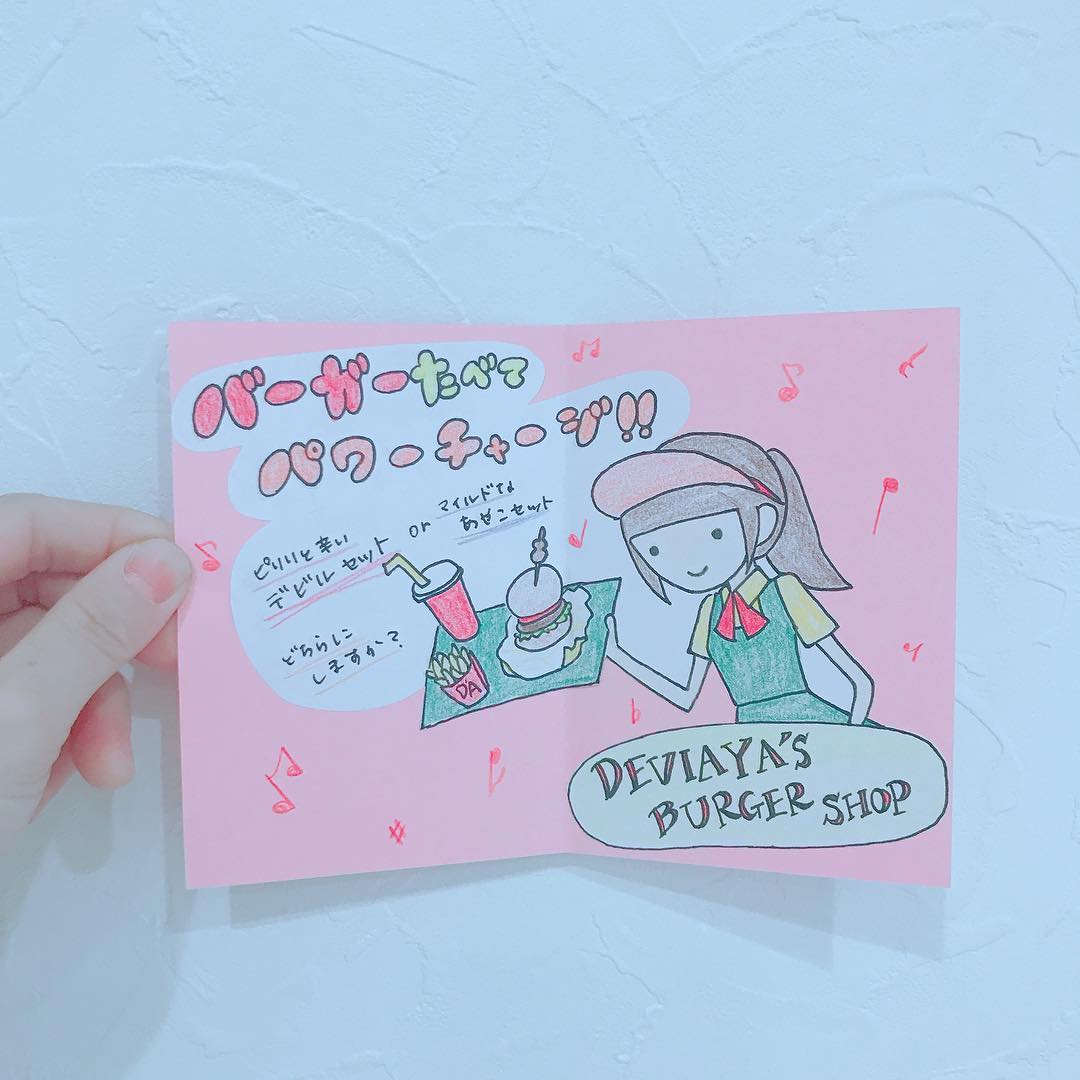 バーガーたべて
パワーチャージ!!
ピリリと辛い
デビルセット
or
マイルドな
あやこセット
どちらに
しますか？
D'A
DEVIAYA'S
BURGER SHOP